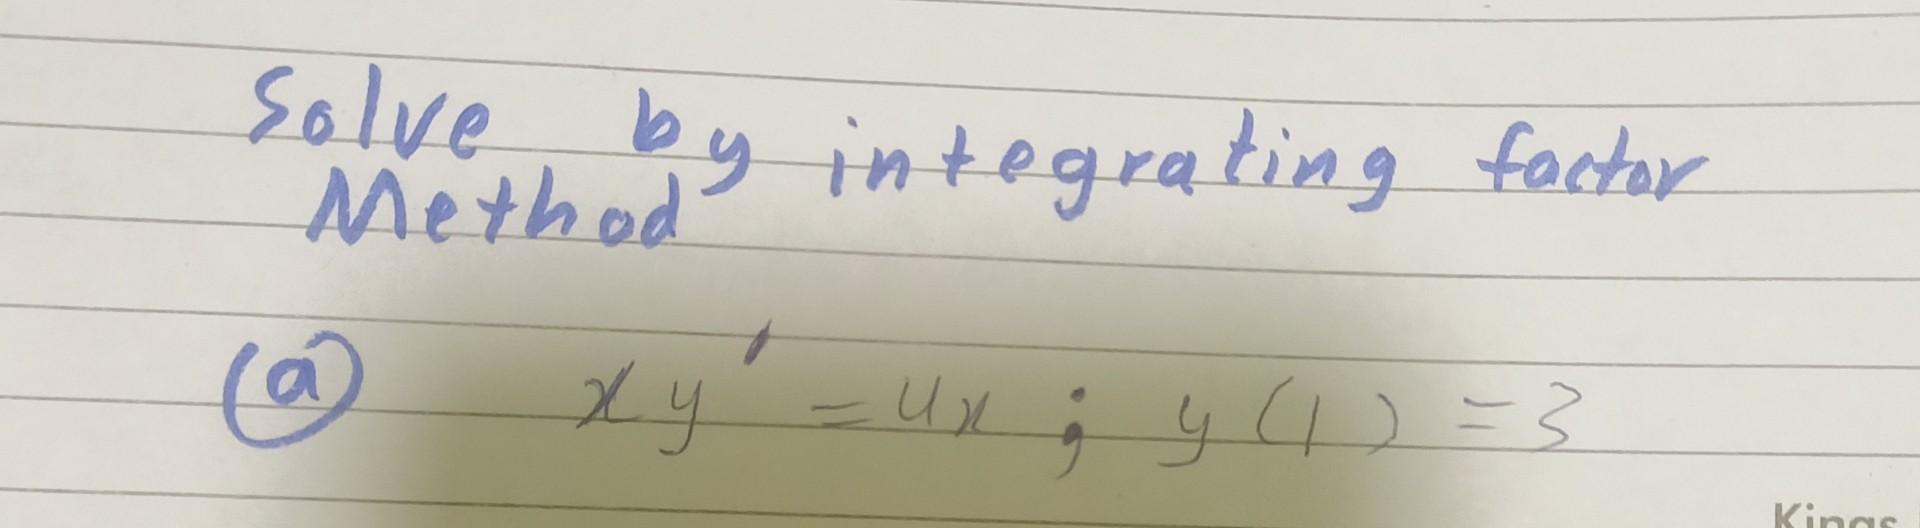 Solve by integrating factor
Method
(a) xy' = 4x ; y(1) = 3
Kings